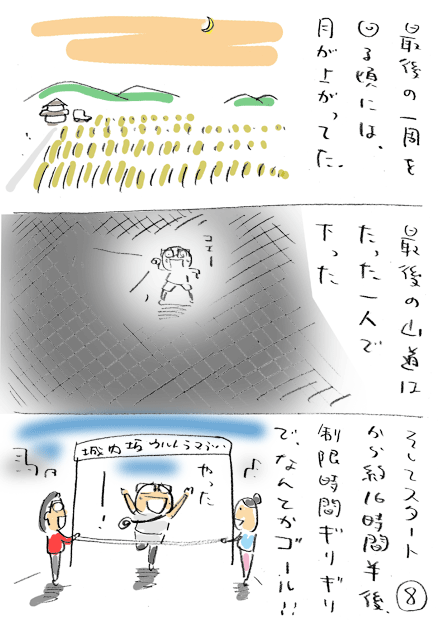 最後の一周を
回る頃には、
月が上がってた。
最後の山道は
たった一人で
下った
コエー
そしてスタート
から約16時間半後、
制限時間ギリギリ
で、なんとかゴール!!
やったー!
8